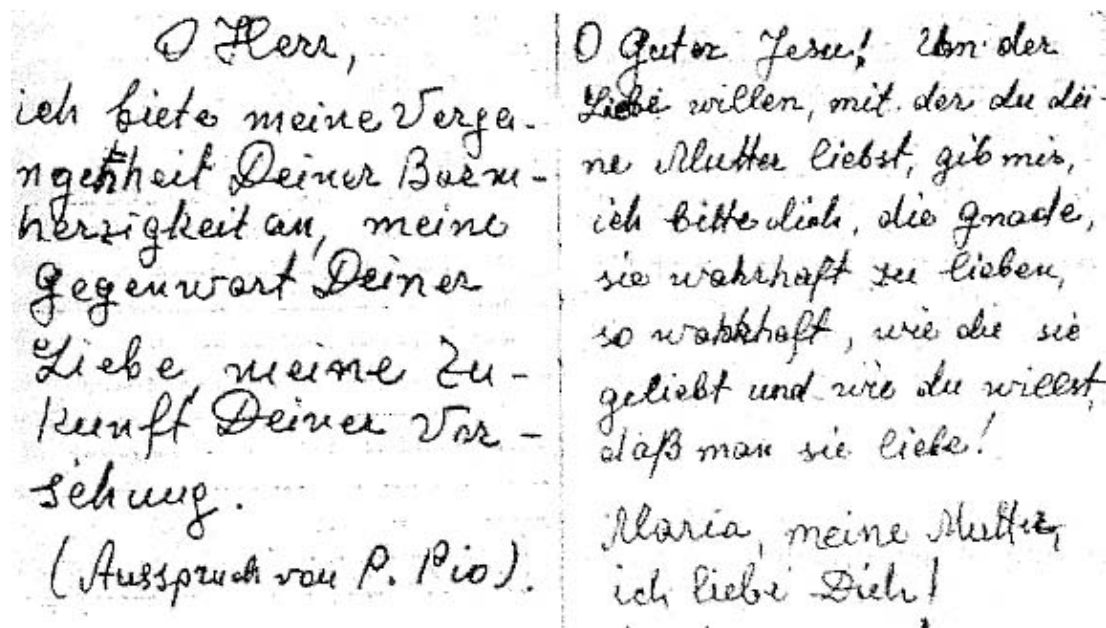 O Herr,
ich biete meine Verga-
ngenheit Deiner Barm-
herzigkeit an, meine
Gegenwart Deiner
Liebe, meine Zu-
kunft Deiner Vor-
sehung.
(Ausspruch von P. Pio).
O Guter Jesu! Um der
Liebe willen, mit der du dei-
ne Mutter liebst, gib mir,
ich bitte dich, die Gnade,
sie wahrhaft zu lieben,
so wahrhaft, wie du sie
geliebt und wie du willst,
daß man sie liebe!
Maria, meine Mutter,
ich liebe Dich!